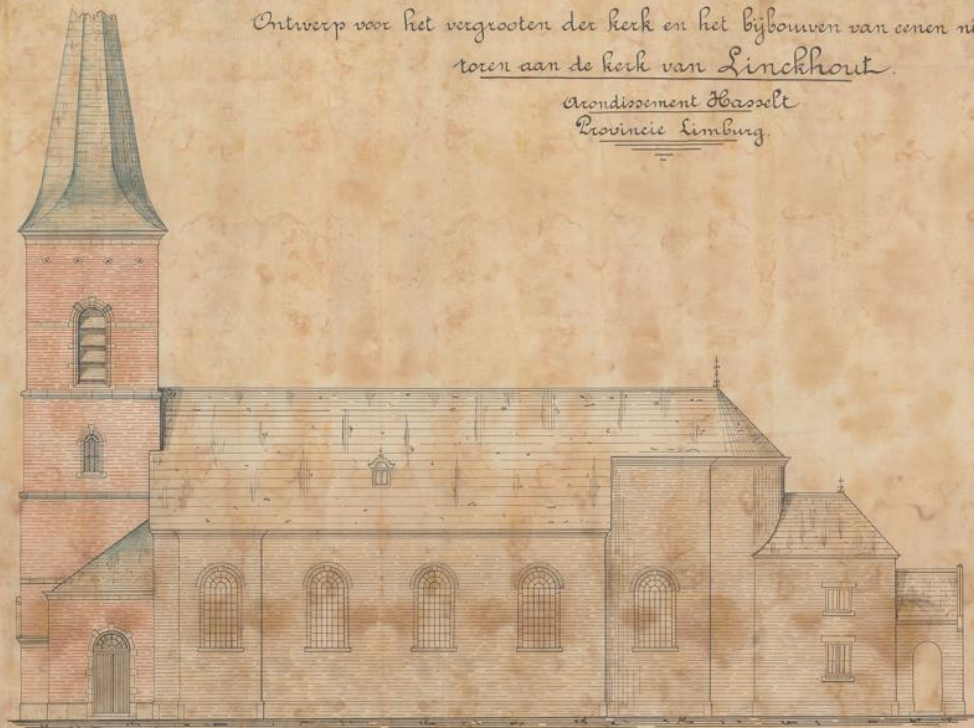 Ontwerp voor het vergrooten der kerk en het bijbouwen van eenen
toren aan de kerk van Linckhout.
Arondissement Hasselt
Provincie Limburg.